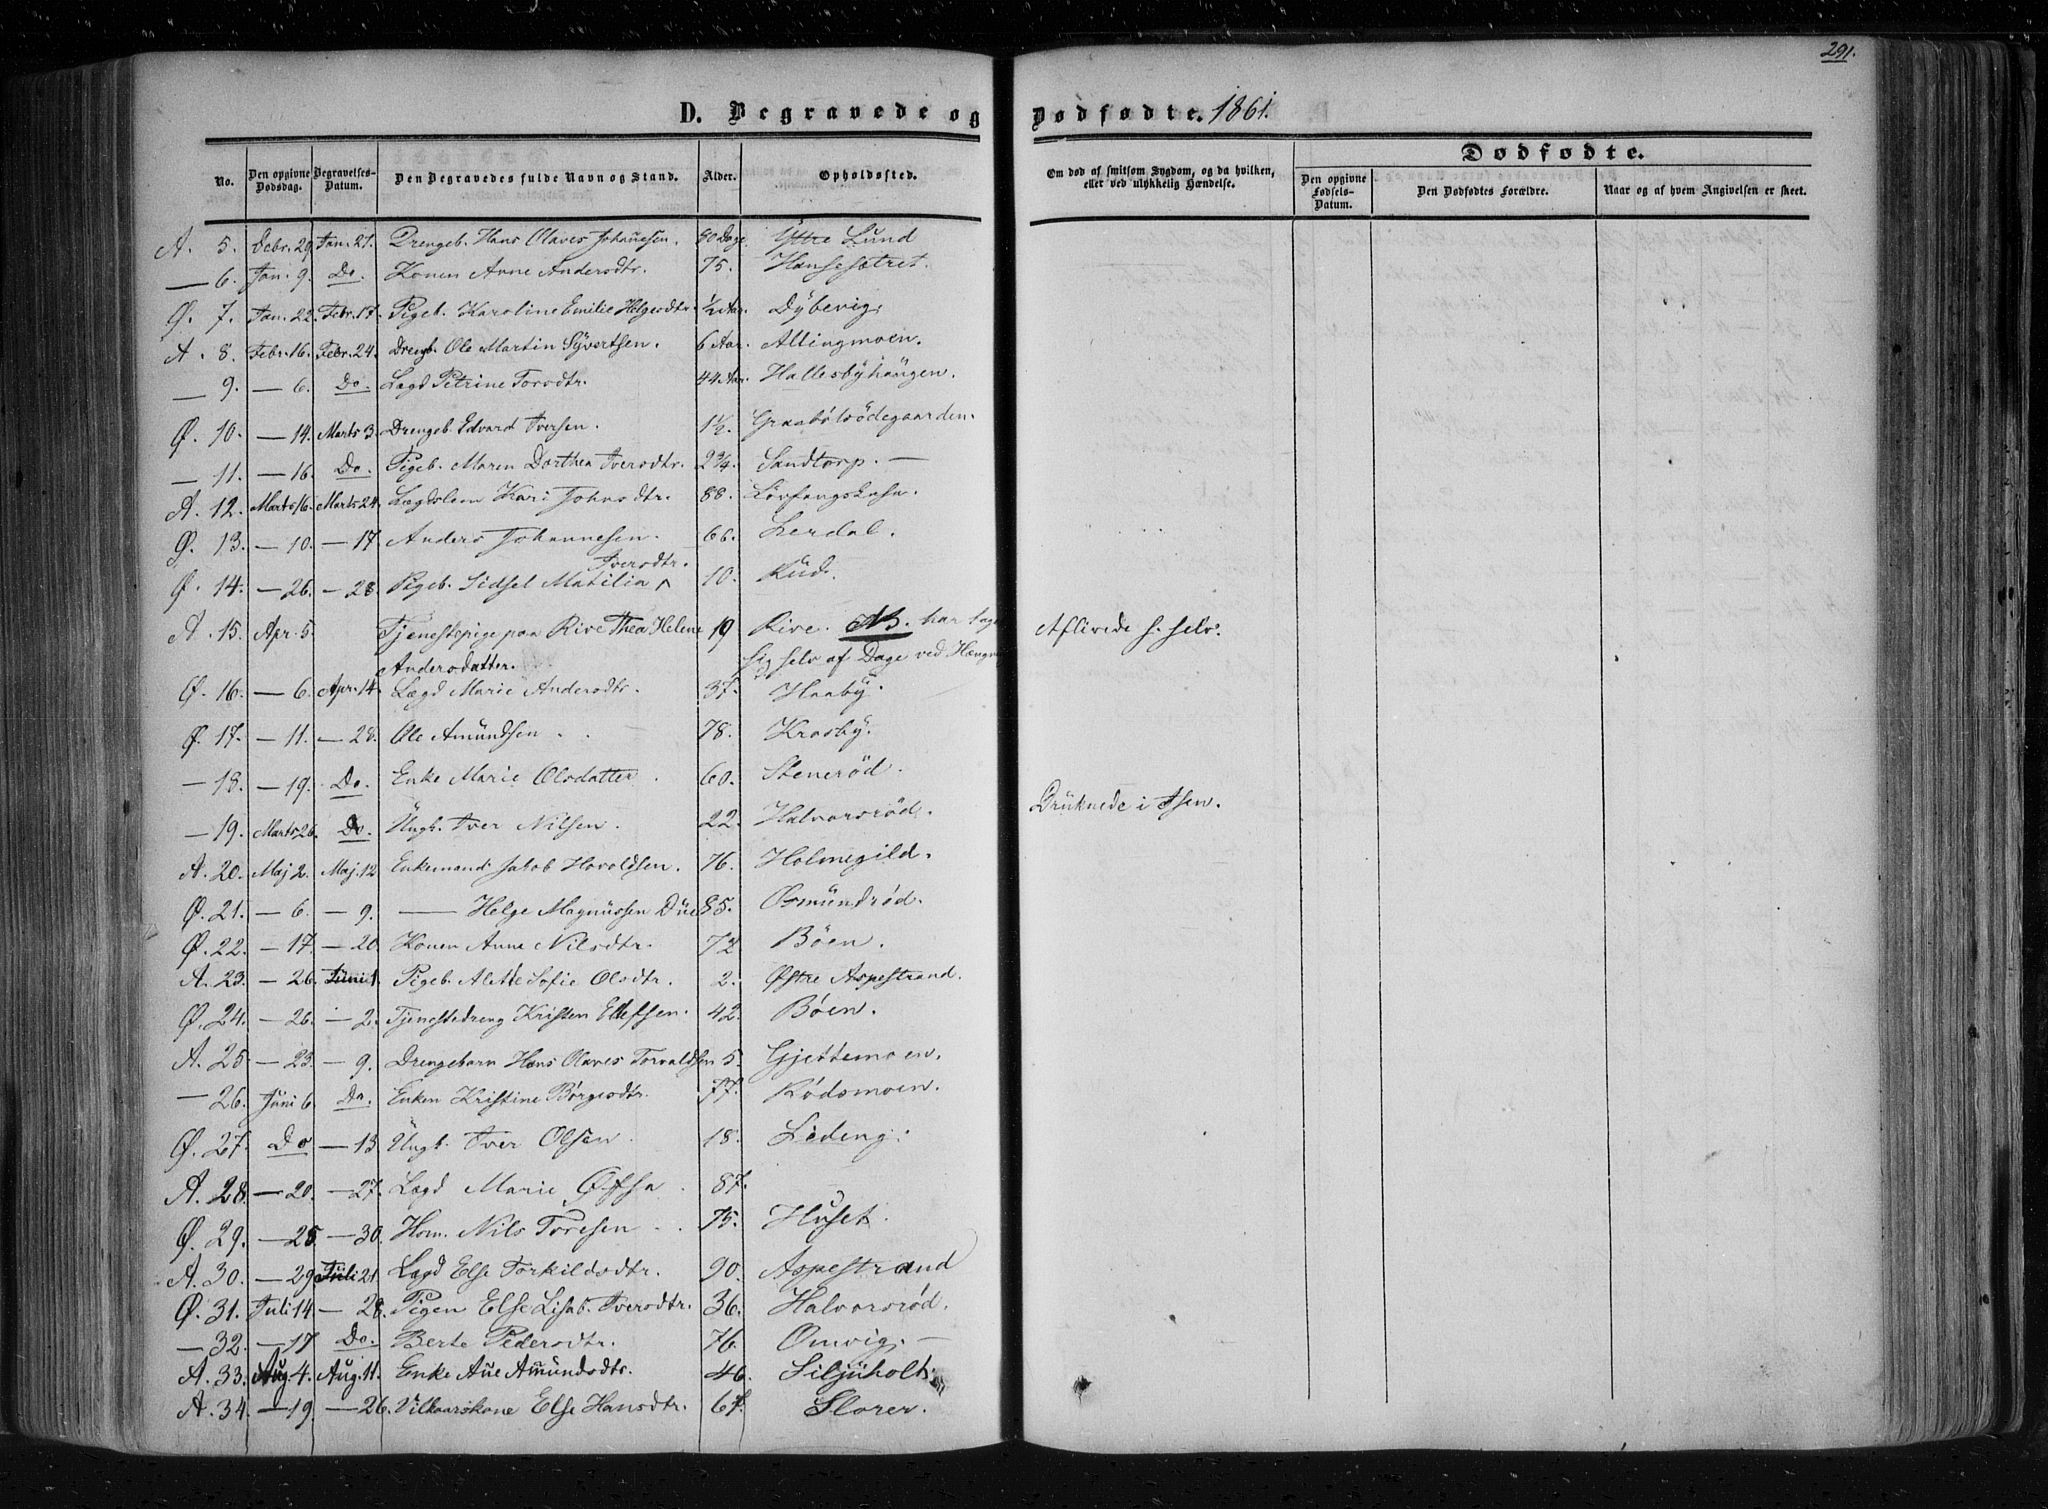 291.
D. Begravede og Dødfødte. 1861.
No. Den opgivne Dødsdag. Begravelses-Datum. Den Begravedes fulde Navn og Stand. Alder. Opholdssted. Om død af smitsom Sygdom, og da hvilken, eller ved ulykkelig Hændelse. Dødfødte.
Den opgivne Fødsels-Datum. Den Dødfødtes Forældre. Naar og af hvem Angivelsen er skeet.
A. 5. Febr. 29 Jan. 27. Drengeb. Hans Olaves Johannesen. 80 Dage Yttre Lund
— 6. Jan. 9. Do. Konen Anne Andersdtr. 75. Hansesætret.
Ø. 7. Jan. 22. Febr. 17. Pigeb. Karoline Emilie Helgesdtr. ½ Aar. Dybevig.
A. 8. Febr. 16. Febr. 24. Drengb. Ole Martin Syvertsen. 6 Aar. Altingmoen.
— 9. — 6. Do. Lægd Petrine Torsdtr. 44 Aar. Hallesbyhaugen.
Ø. 10. — 14. Marts 3. Drengeb. Edvard Iversen. 1½. Graabølsödegaarden.
— 11. — 16. Do. Pigeb. Maren Dorthea Iversdtr. 2¾. Sandtorp. —
A. 12. Marts 16. Marts 24. Lægdslem Kari Johnsdtr. 88. Lövfangskasa.
Ø. 13. — 10. — 17. Anders Johannesen. 66. Lerdal.
Ø. 14. — 26. — 28. Pigeb. Sidsel Matilia Iversdtr. 10. Rüd.
A. 15. Apr. 5. Tjenestepige paa Rive Thea Helene 19 Rive. NB. har tage Aflivede s. selv.
Andersdatter. sig selv af Dage ved
Ø. 16. — 6. Apr. 14. Lægd Marie Andersdtr. 37. Haaby.
Ø. 17. — 11. — 28. Ole Amündsen. 78. Krosby.
— 18. — 19. Do. Enke Marie Olsdatter. 60. Stenerød.
— 19. Marts 26. Do. Üngk. Iver Nilsen. 22. Halvorsrød. Drüknede i Isen.
A. 20. Maj 2. Maj. 12 Enkemand Jakob Haroldsen. 76. Holmegild.
Ø. 21. — 6. — 9. — Helge Magnüssen Düe 85. Osmündrød.
Ø. 22. — 17. — 20. Konen Anne Nilsdtr. 72 Böen.
A. 23. — 26. Jüni 1. Pigeb. Alette Sofie Olsdtr. 2. Østre Aspestrand.
Ø. 24. — 26. — 2. Tjenestedreng Kristen Ellefsen. 42. Böen.
A. 25 — 23. — 9. Drengebarn Hans Olaves Torvaldsen 5 Gjettemoen.
— 26. Jüni 6. Do. Enken Kristine Börgesdtr. 77. Rödsmoen.
Ø. 27. Do — 13. Üngk. Iver Olsen. 18. Lideng.
A. 28. — 20. — 27. Lægd Marie 87.
Ø. 29. — 25. — 30. Hsm. Nils Toresen 75. Huset.
A. 30. — 29 Jüli 21. Lægd Else Torkildsdtr. 90. Aspestrand
Ø. 31. Juli 14 — 28. Pigen Else Lisab. Iversdtr. 36. Halvorsrød.
— 32. — 17 Do. Berte Pedersdtr. 76. Omvig. —
A. 33. Aug. 4. Aug. 11. Enke Ane Amundsdtr. 46. Siljüholt
A. 34. — 19. — 26. Vilkaarskone Else Hansdtr. 67. Slorer.